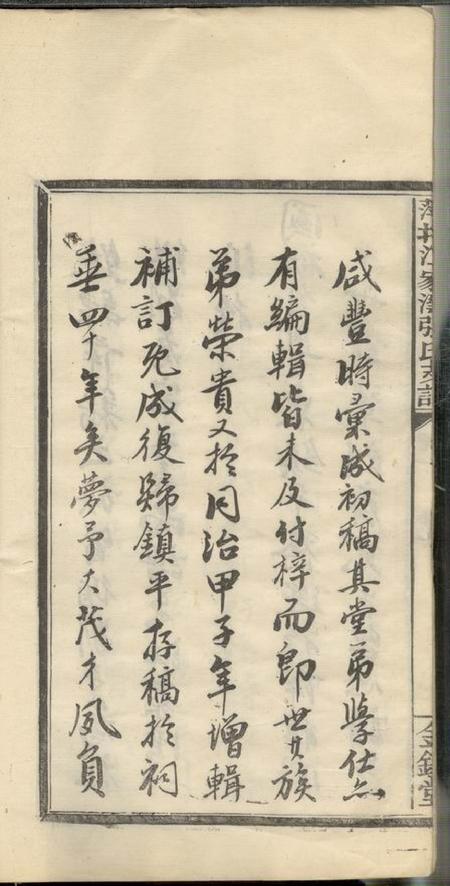 咸豐時彙成初稿其堂弟學仕亦
有編輯皆未及付梓而即世其族
弟榮貴又於同治甲子年增輯
補訂既成復歸鎮平存稿於祠
垂四十年矣夢予大茂才夙負